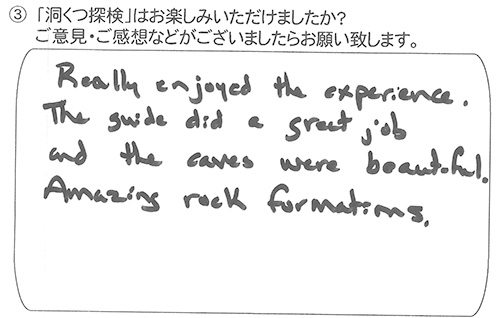 ③「洞くつ探検」はお楽しみいただけましたか?
ご意見・ご感想などがございましたらお願い致します。
Really enjoyed the experience.
The guide did a great job
and the caves were beautiful.
Amazing rock formations.